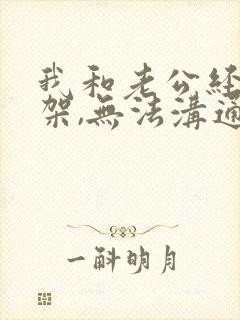 我和老公經
架,無法溝通
一斛明月